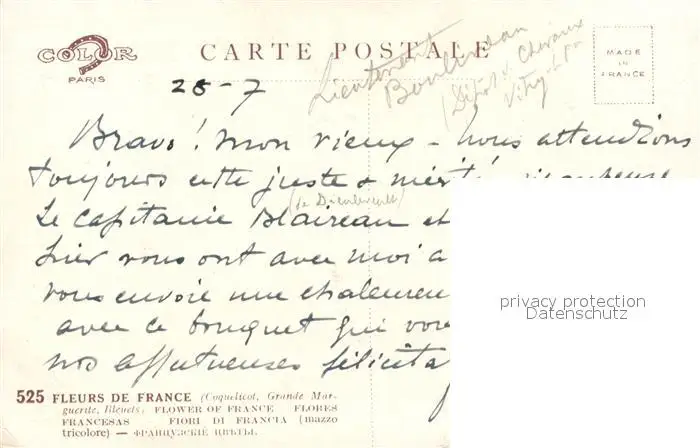 COLOR
PARIS
CARTE POSTALE
MADE
IN
FRANCE
28-7
Lieutenant
(Dépôt de Chevaux
Bravo! mon vieux - nous attendions
toujours cette juste & méritée récompense
Le capitaine Blaireau et
hier vous ont avec moi a
vous envoie une chaleureu
avec ce bouquet qui vou
nos affectueuses félicita
privacy protection
Datenschutz
525 FLEURS DE FRANCE (Coquelicot, Grande Mar-
guerite, Bleuets) FLOWER OF FRANCE FLORES
FRANCESAS FIORI DI FRANCIA (mazzo
tricolore) — ФРАНЦУЗСКІЕ ЦВѢТЫ.